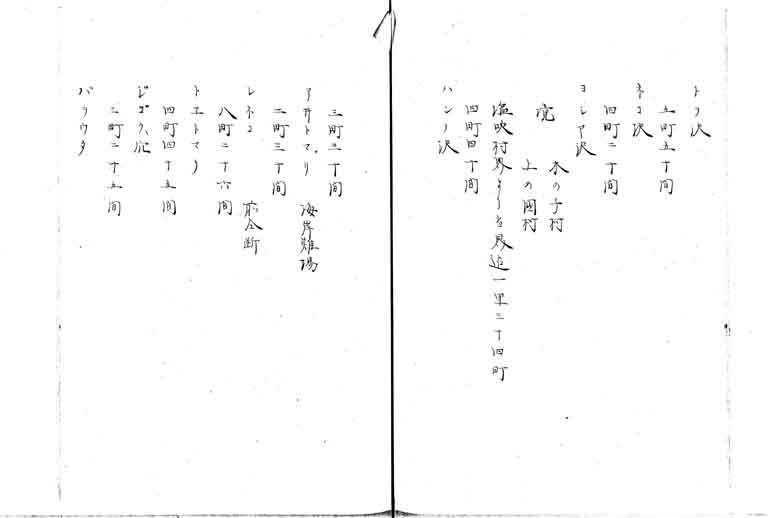 トリ沢
五町五十間
ネコ沢
四町二十間
ヨシア沢
木の子村
境
上の國村
塩吹村界より当界迄一里三十四町
四町四十間
ハンノ沢
三町二十間
アヰトマリ 海岸難場
二町三十間
レホコ 前仝断
八町二十六間
トエトマリ
四町四十五間
ジゴク穴
三町二十五間
バラウタ